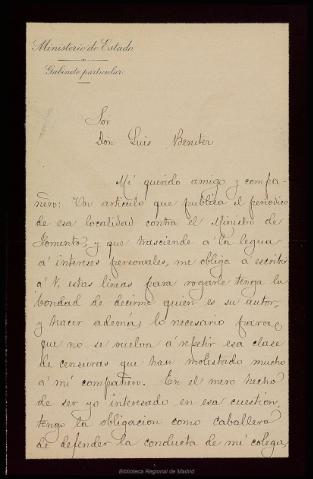 Ministerio de Estado
Gabinete particular
Sor
Don Luis Beniter
Mi querido amigo y compa-
ñero: Un artículo que publica el periódico
de esa localidad contra el Ministro de
Fomento, y que trasciende á la legua
á intereses personales, me obliga á escribir
á V. estas líneas para rogarle tenga la
bondad de decirme quien es su autor,
y hacer además lo necesario para
que no se vuelva á repetir esa clase
de censuras que han molestado mucho
á mi compañero. En el mero hecho
de ser yo interesado en esa cuestion,
tengo la obligacion como caballero
de defender la conducta de mi colega,
Biblioteca Regional de Madrid